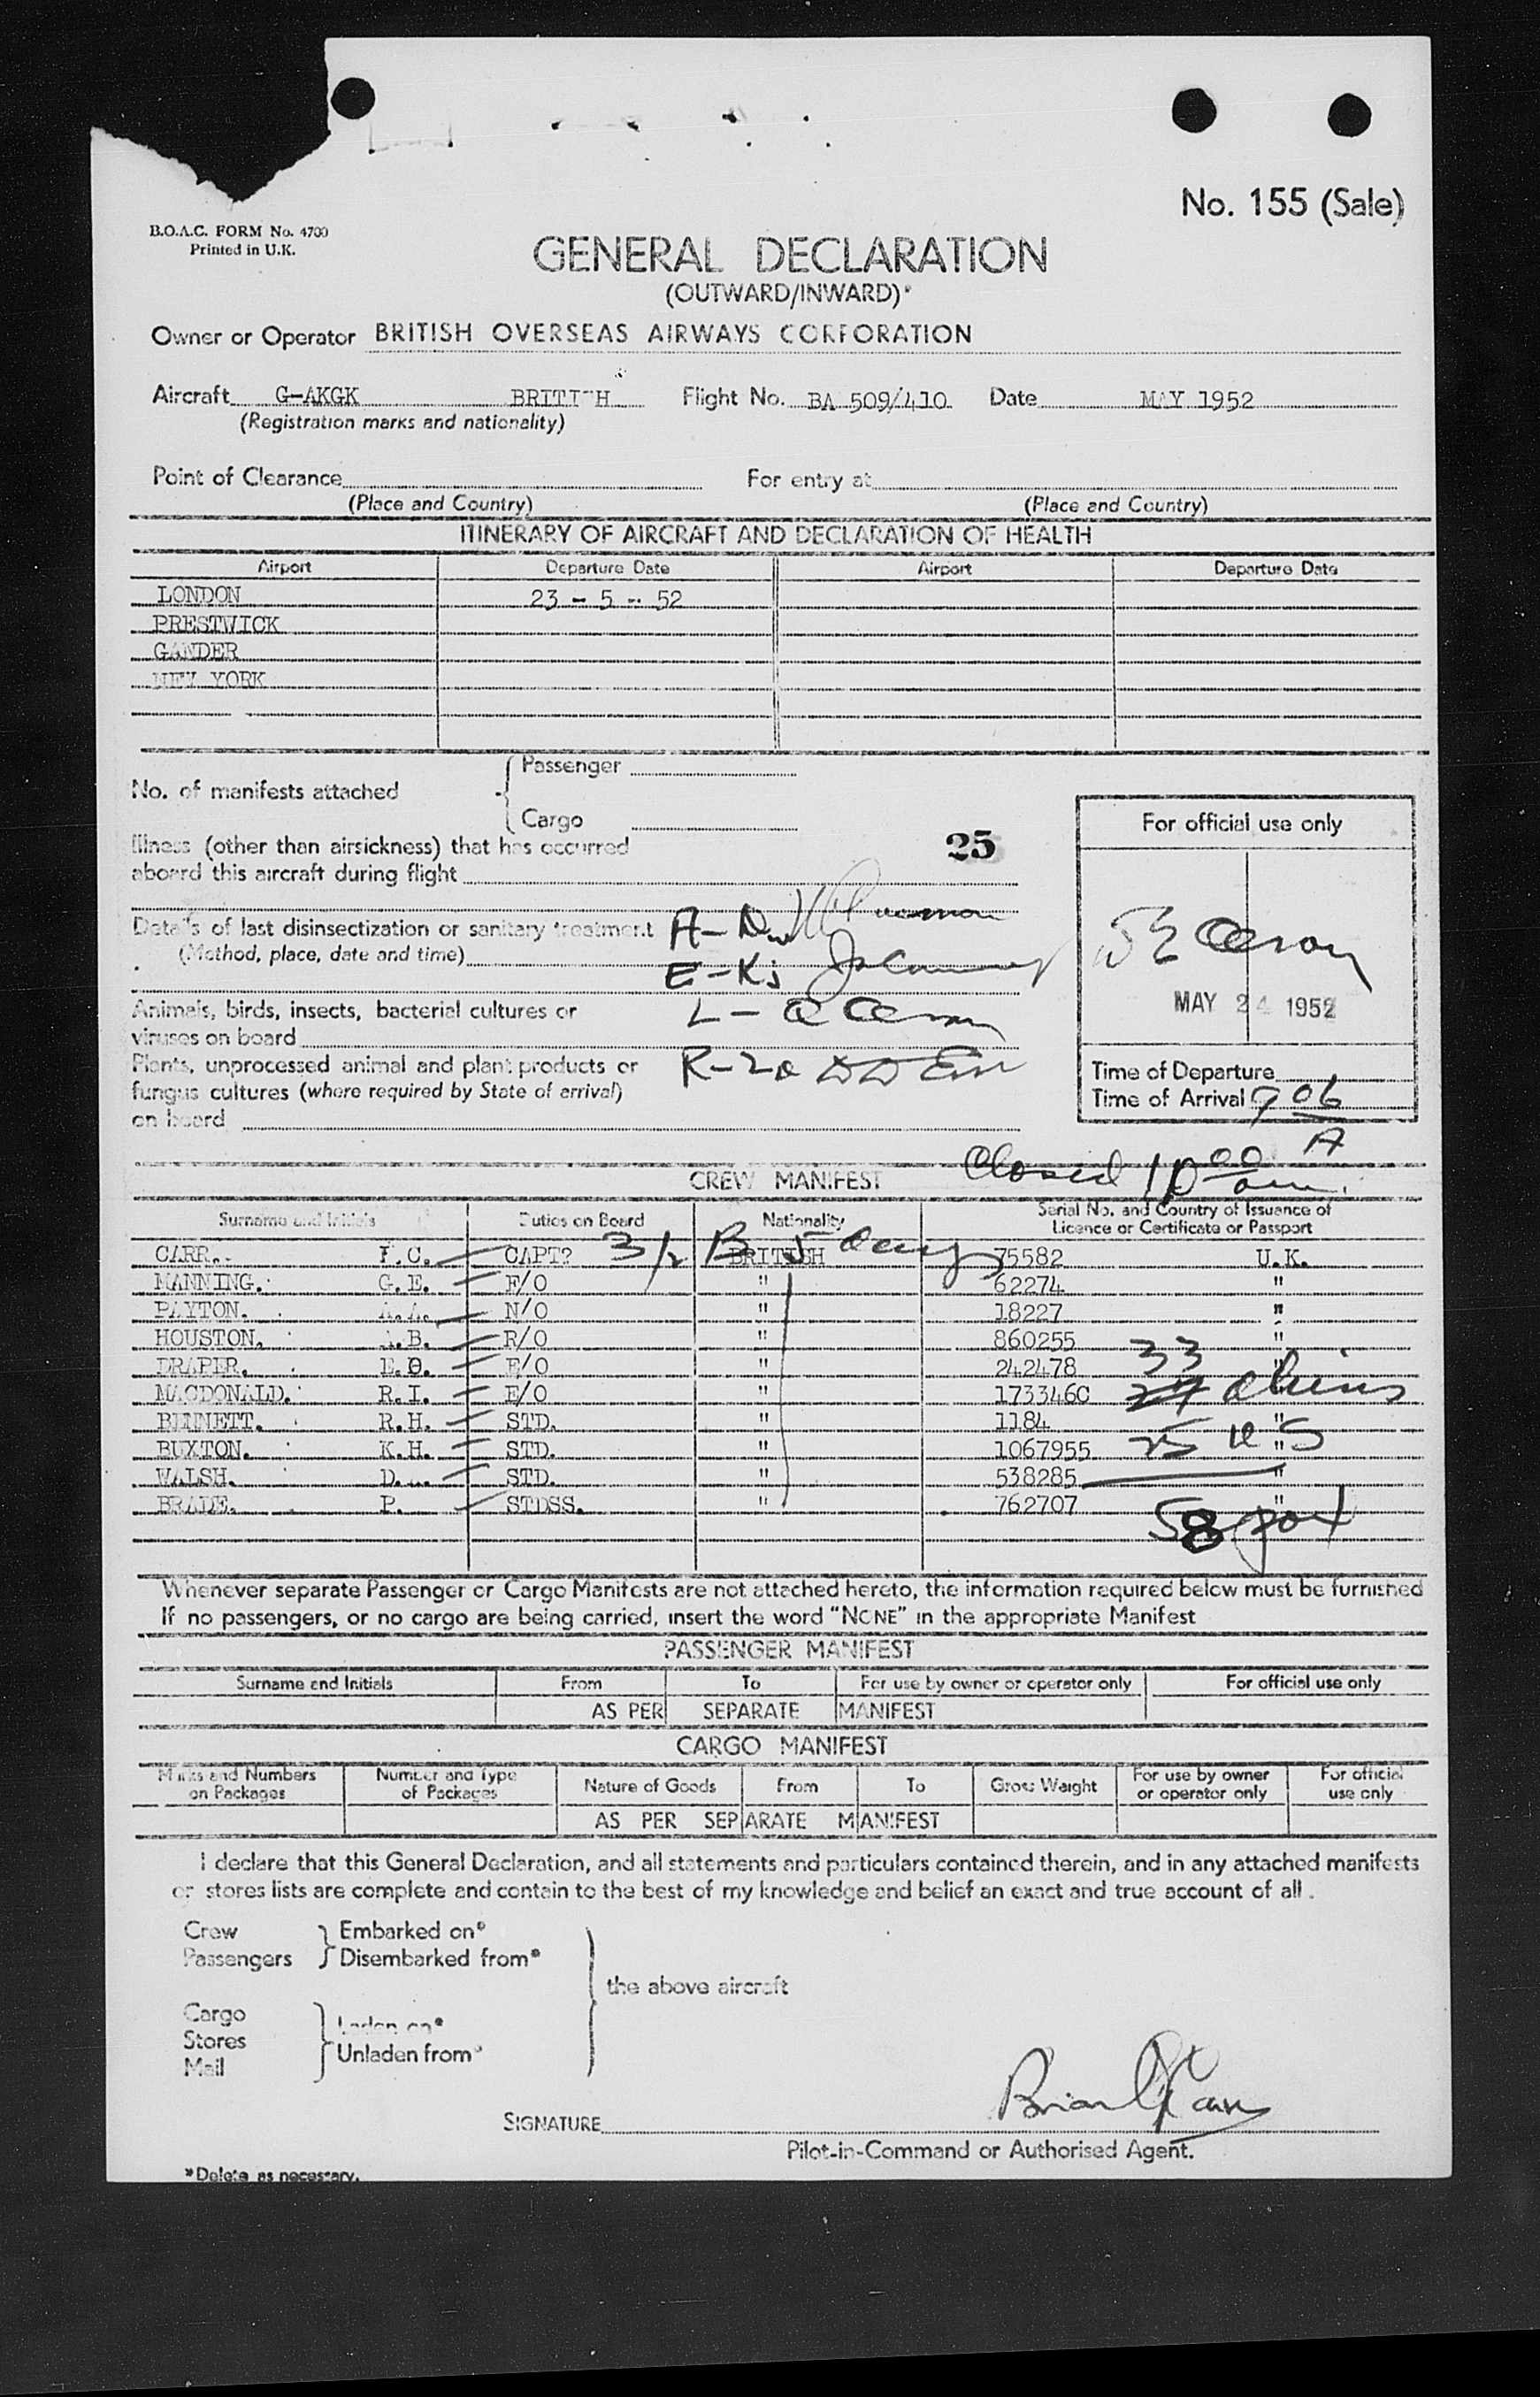 No. 155 (Sale)
B.O.A.C. FORM No. 4700
Printed in U.K.
GENERAL DECLARATION
(OUTWARD/INWARD)*
Owner or Operator BRITISH OVERSEAS AIRWAYS CORPORATION
Aircraft G-AKGK BRITISH Flight No. BA 509/410 Date MAY 1952
(Registration marks and nationality)
Point of Clearance For entry at
(Place and Country) (Place and Country)
ITINERARY OF AIRCRAFT AND DECLARATION OF HEALTH
Airport Departure Date Airport Departure Date
LONDON 23 - 5 - 52
PRESTWICK
GANDER
NEW YORK
No. of manifests attached { Passenger
Cargo
Illness (other than airsickness) that has occurred
aboard this aircraft during flight
25
Details of last disinsectization or sanitary treatment A-
(Method, place, date and time) E-
Animals, birds, insects, bacterial cultures or L-
viruses on board
Plants, unprocessed animal and plant products or R-
fungus cultures (where required by State of arrival)
on board
For official use only
MAY 24 1952
Time of Departure
Time of Arrival 9 06
A
Closed 10 00 am.
CREW MANIFEST
Surname and Initials Duties on Board Nationality Serial No. and Country of Issuance of
Licence or Certificate or Passport
3/2 B 5 days
CARR. F.C. CAPT? BRITISH 75582 U.K.
MANNING. G.E. F/O " 62274 "
PAYTON. A.A. N/O " 18227 "
HOUSTON. .B. R/O " 860255 "
33
DRAPER. E.O. E/O " 242478 "
MACDONALD. R.I. E/O " 173346C aliens
BENNETT. R.H. STD. " 1184 "
BUXTON. K.H. STD. " 1067955 " 25 US
WALSH. D. STD. " 538285 "
BRADE. P. STDSS. " 762707 "
58
Whenever separate Passenger or Cargo Manifests are not attached hereto, the information required below must be furnished
If no passengers, or no cargo are being carried, insert the word "NONE" in the appropriate Manifest
PASSENGER MANIFEST
Surname and Initials From To For use by owner or operator only For official use only
AS PER SEPARATE MANIFEST
CARGO MANIFEST
Marks and Numbers on Packages Number and Type of Packages Nature of Goods From To Gross Weight For use by owner or operator only For official use only
AS PER SEPARATE MANIFEST
I declare that this General Declaration, and all statements and particulars contained therein, and in any attached manifests
or stores lists are complete and contain to the best of my knowledge and belief an exact and true account of all .
Crew } Embarked on*
Passengers } Disembarked from*
the above aircraft
Cargo
Laden on*
Stores
Unladen from*
Mail
SIGNATURE
Pilot-in-Command or Authorised Agent.
*Delete as necessary.